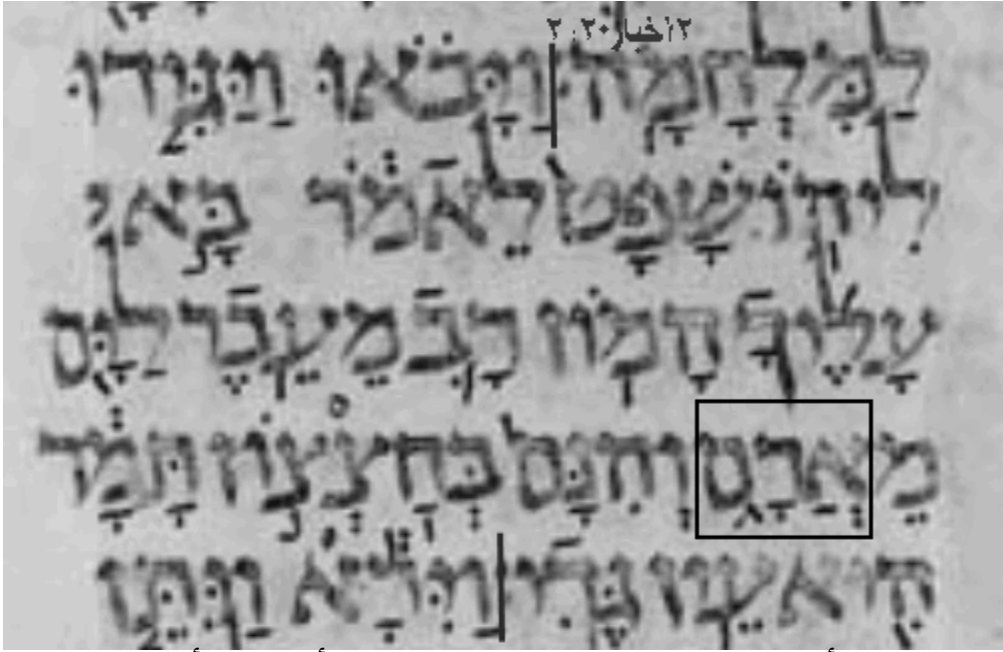 ٢اخبار٢٠: ٢
לַמִּלְחָמָֽה׃ וַיָּבֹ֗אוּ וַיַּגִּ֤ידוּ
לִֽיהוֹשָׁפָט֙ לֵאמֹ֔ר בָּ֣א
עָלֶ֜יךָ הָמ֥וֹן רָ֛ב מֵעֵ֥בֶר לַיָּ֖ם
מֵאֲרָ֑ם וְהִנָּם֙ בְּחַֽצְצ֣וֹן תָּמָ֔ר
הִ֖יא עֵ֥ין גֶּֽדִי׃ וַיִּרָ֕א וַיִּתֵּ֧ן